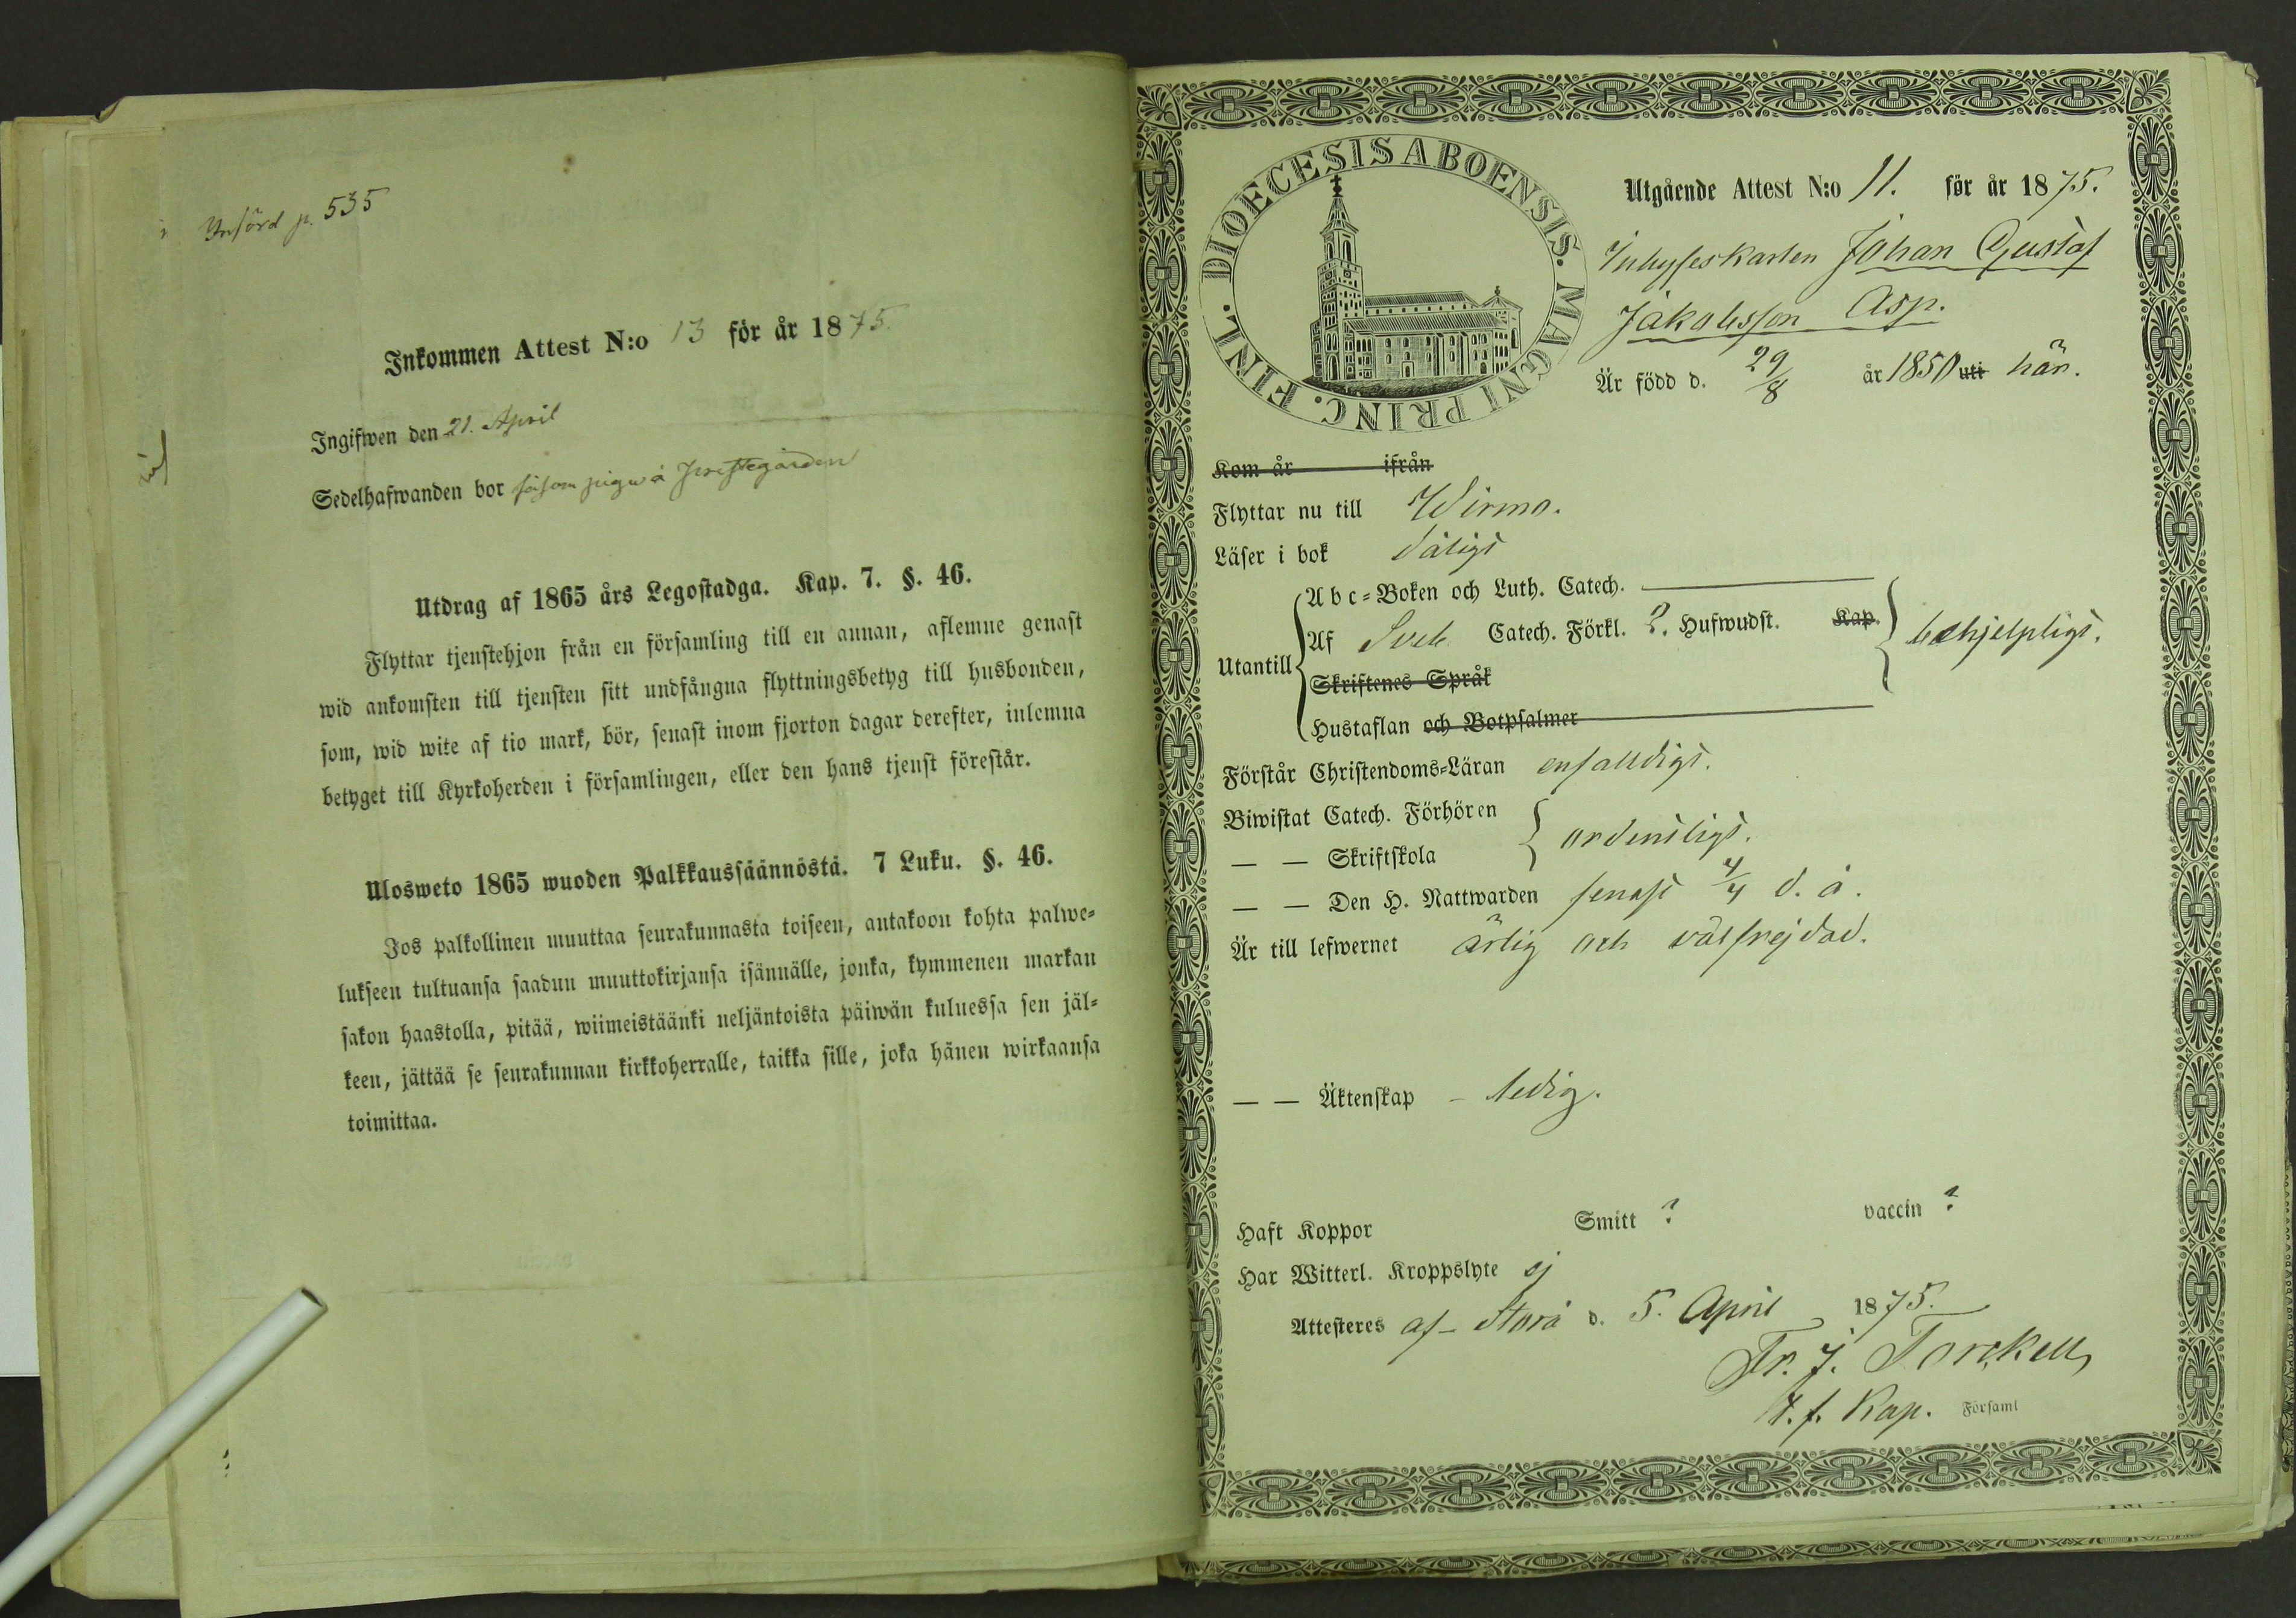 Införd p. 535
Inkommen Attest N:o 13 för år 1875.
Ingifwen den 21. April
Sedelhafwanden bor såsom piga å Prestegården
Utdrag af 1865 års Legostadga. Kap. 7. §. 46.
Flyttar tjenstehjon från en församling till en annan, aflemne genast
wid ankomsten till tjensten sitt undfångna flyttningsbetyg till husbonden,
som, wid wite af tio mark, bör, senast inom fjorton dagar derefter, inlemna
betyget till Kyrkoherden i församlingen, eller den hans tjenst förestår.
Ulosweto 1865 wuoden Palkkaussäännöstä. 7 Luku. §. 46.
Jos palkollinen muuttaa seurakunnasta toiseen, antakoon kohta palwe-
lukseen tultuansa saadun muuttokirjansa isännälle, jonka, kymmenen markan
sakon haastolla, pitää, wiimeistäänki neljäntoista päiwän kuluessa sen jäl-
keen, jättää se seurakunnan kirkkoherralle, taikka sille, joka hänen wirkaansa
toimittaa.
DIOECESIS ABOENSIS. MAGNI PRINC. FINL.
Utgående Attest N:o 11. för år 1875.
Inhyseskarlen Johan Gustaf
Jakobsson Asp.
Är född d. 29/8 år 1850 uti här.
Kom år ifrån
Flyttar nu till Wirmo.
Läser i bok dåligt
Abc-Boken och Luth. Catech.
Utantill Af Sveb. Catech. Förkl. 2. Hufwudst. Kap. behjelpligt.
Skriftenes Språk
Hustaflan och Botpsalmer
Förstår Christendoms-Läran enfaldigt.
Biwistat Catech. Förhören
— — Skriftskola ordentligt.
— — Den H. Nattwarden senast 4/4 d. å.
Är till lefwernet ärlig och välfrejdad.
— — Äktenskap - ledig.
Haft Koppor Smitt ? vaccin ?
Har Witterl. Kroppslyte ej
Attesteres af d. 5. April 1875.
Fr. J. Torckell
t. f. Kap. Församl